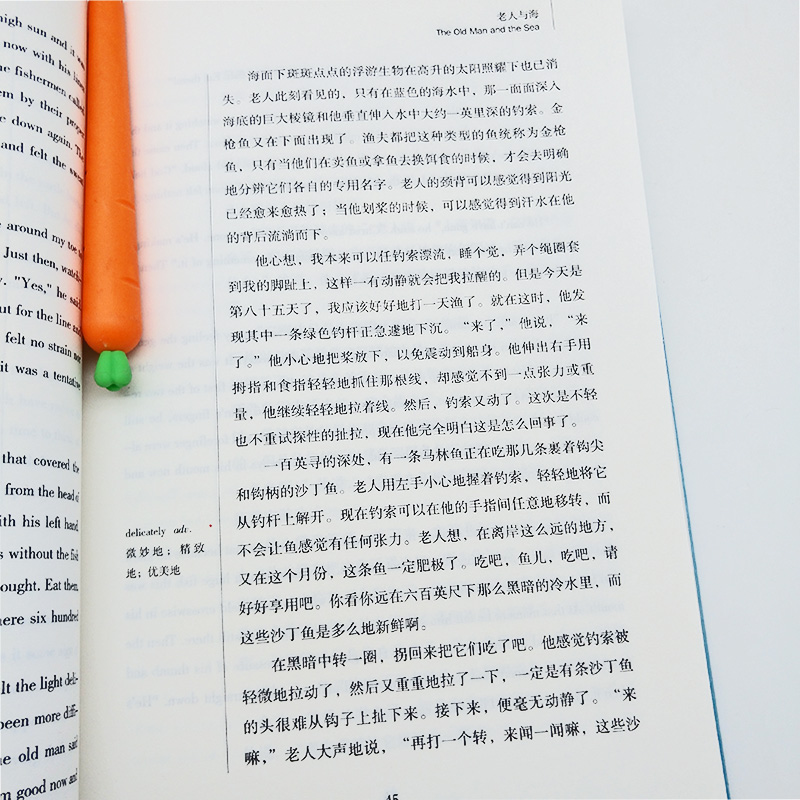 high sun and it
now with his
fishermen called
em by their proper
e down again. The
and felt the sweat
around my toe
Just then,
"Yes," he said
out for the line and
felt no strain nor
it was a tentative
that covered the
from the head of
with his left hand
s without the fish
ought. Eat them.
here six hundred
lt the light deli-
been more diffi-
he old man said
m good now and
老人与海
The Old Man and the Sea
海面下斑斑点点的浮游生物在高升的太阳照耀下也已消
失。老人此刻看见的,只有在蓝色的海水中,那一面面深入
海底的巨大棱镜和他垂直伸入水中大约一英里深的钓索。金
枪鱼又在下面出现了。渔夫都把这种类型的鱼统称为金枪
鱼,只有当他们在卖鱼或拿鱼去换饵食的时候,才会去明确
地分辨它们各自的专用名字。老人的颈背可以感觉得到阳光
已经愈来愈热了;当他划桨的时候,可以感觉得到汗水在他
的背后流淌而下。
他心想,我本来可以任钓索漂流,睡个觉,弄个绳圈套
到我的脚趾上,这样一有动静就会把我拉醒的。但是今天是
第八十五天了,我应该好好地打一天渔了。就在这时,他发
现其中一条绿色钓杆正急遽地下沉。“来了,”他说,“来
了。”他小心地把桨放下,以免震动到船身。他伸出右手用
拇指和食指轻轻地抓住那根线,却感觉不到一点张力或重
量,他继续轻轻地拉着线。然后,钓索又动了。这次是不轻
也不重试探性的扯拉,现在他完全明白这是怎么回事了。
一百英寻的深处,有一条马林鱼正在吃那几条裹着钩尖
和钩柄的沙丁鱼。老人用左手小心地握着钓索,轻轻地将它
从钓杆上解开。现在钓索可以在他的手指间任意地移转,而
不会让鱼感觉有任何张力。老人想,在离岸这么远的地方,
又在这个月份,这条鱼一定肥极了。吃吧,鱼儿,吃吧,请
好好享用吧。你看你远在六百英尺下那么黑暗的冷水里,而
这些沙丁鱼是多么地新鲜啊。
在黑暗中转一圈,拐回来把它们吃了吧。他感觉钓索被
轻微地拉动了,然后又重重地拉了一下,一定是有条沙丁鱼
的头很难从钩子上扯下来。接下来,便毫无动静了。“来
嘛,”老人大声地说,“再打一个转,来闻一闻嘛,这些沙
delicately adv.
微妙地;精致
地;优美地
45